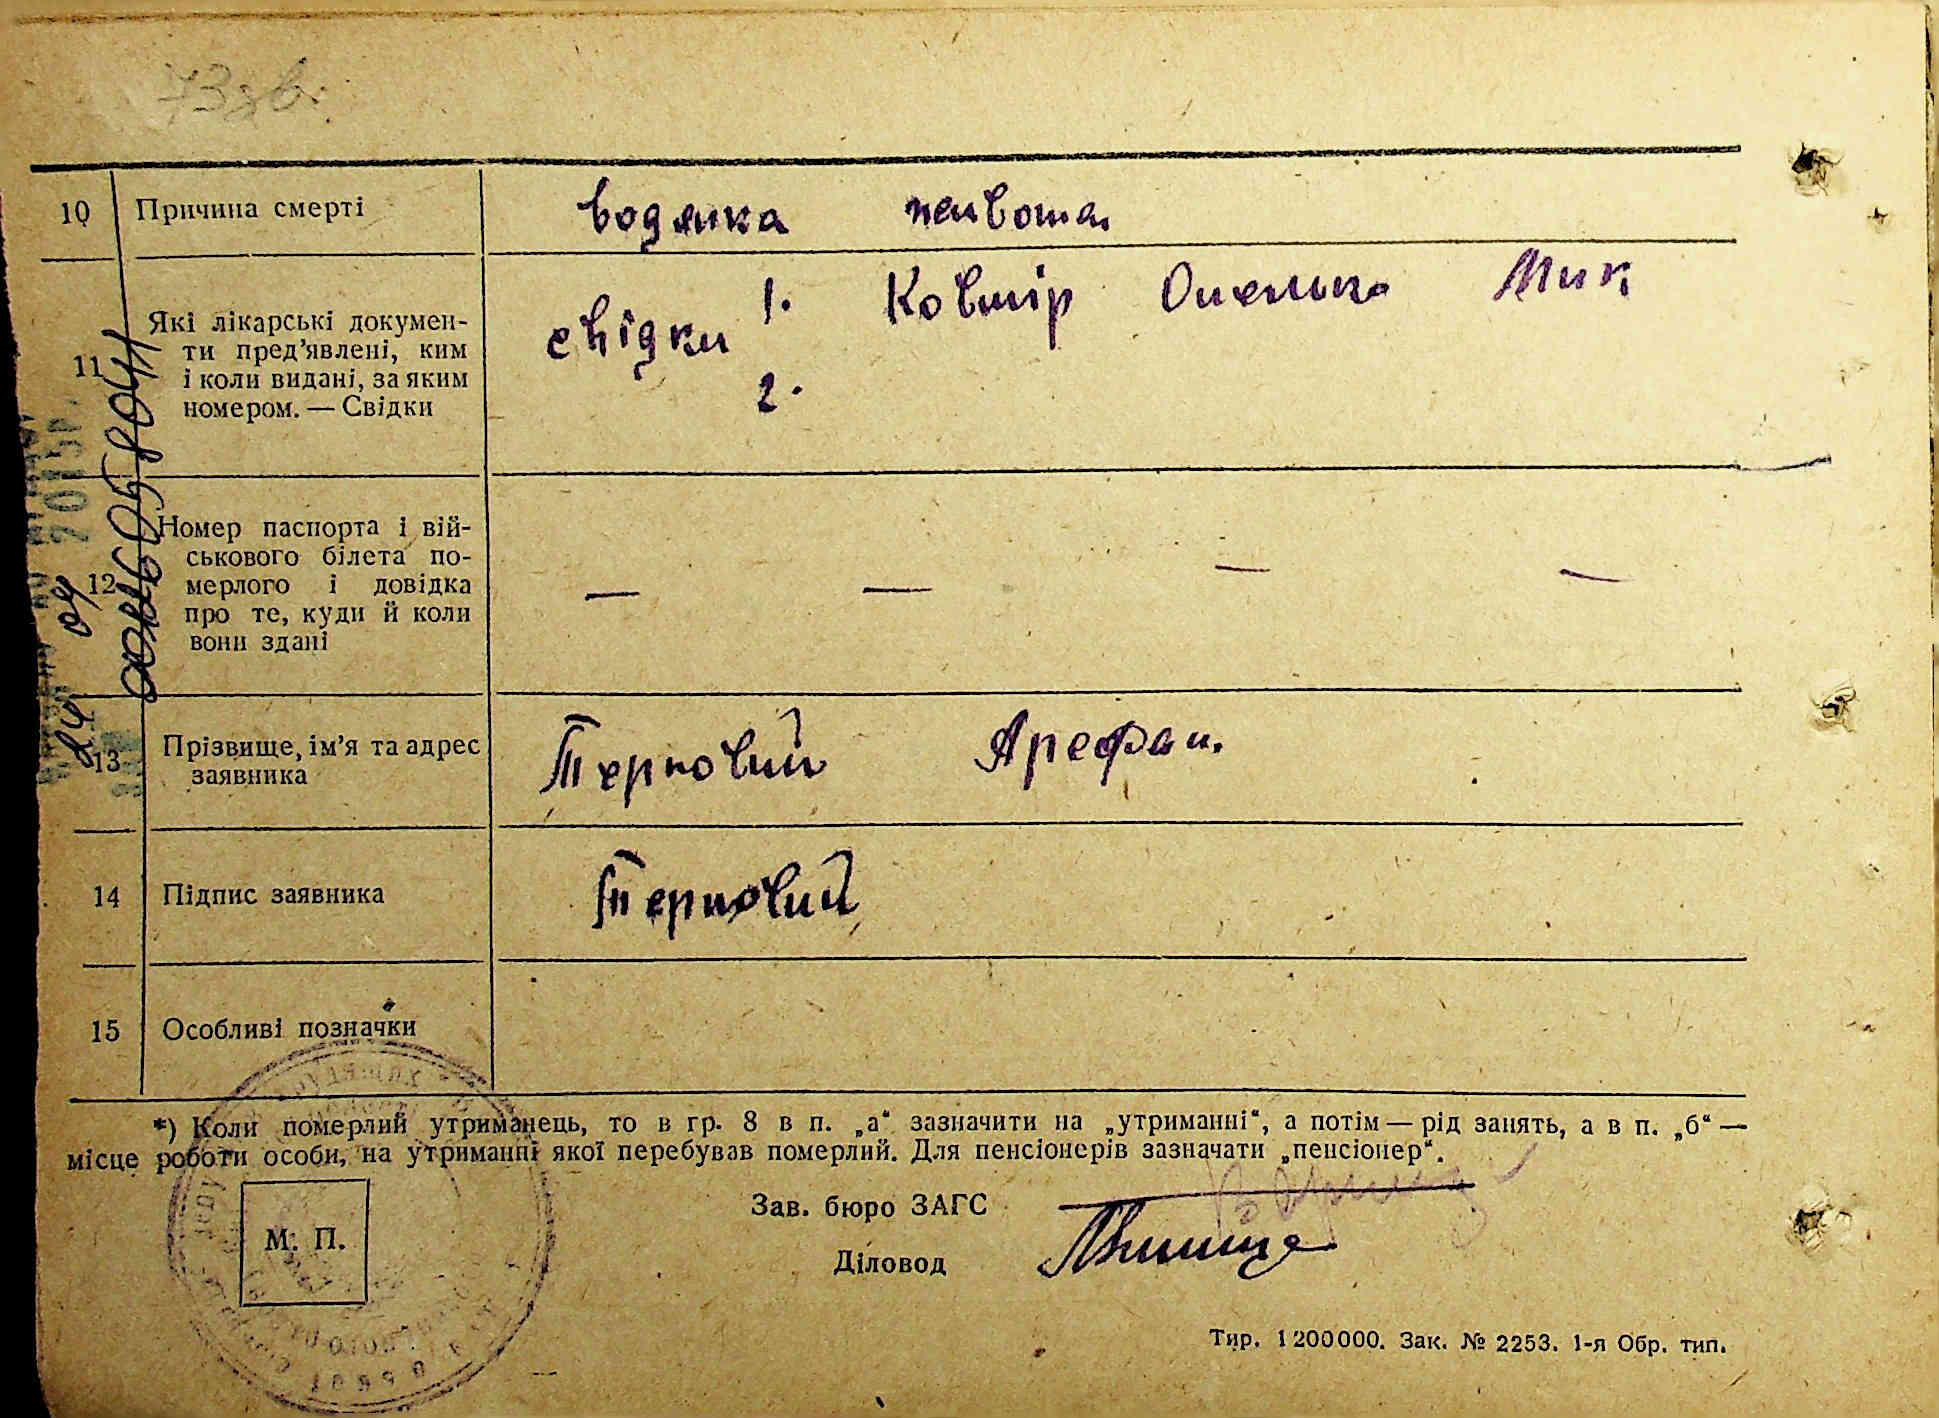 73зв.
10 Причина смерті водянка живота
11 Які лікарські докумен-
ти пред’явлені, ким
і коли видані, за яким
номером. — Свідки
свідки 1. Ковмір Омелько Мик
2.
12 Номер паспорта і вій-
ськового білета по-
мерлого і довідка
про те, куди й коли
вони здані
— — — —
13 Прізвище, ім’я та адрес
заявника
Терновий Арефан.
14 Підпис заявника Терновий
15 Особливі позначки
*) Коли померлий утриманець, то в гр. 8 в п. „а“ зазначити на „утриманні“, а потім — рід занять, а в п. „б“ —
місце роботи особи, на утриманні якої перебував померлий. Для пенсіонерів зазначати „пенсіонер“.
Зав. бюро ЗАГС
М. П.
Діловод
Тир. 1200000. Зак. № 2253. 1-я Обр. тип.